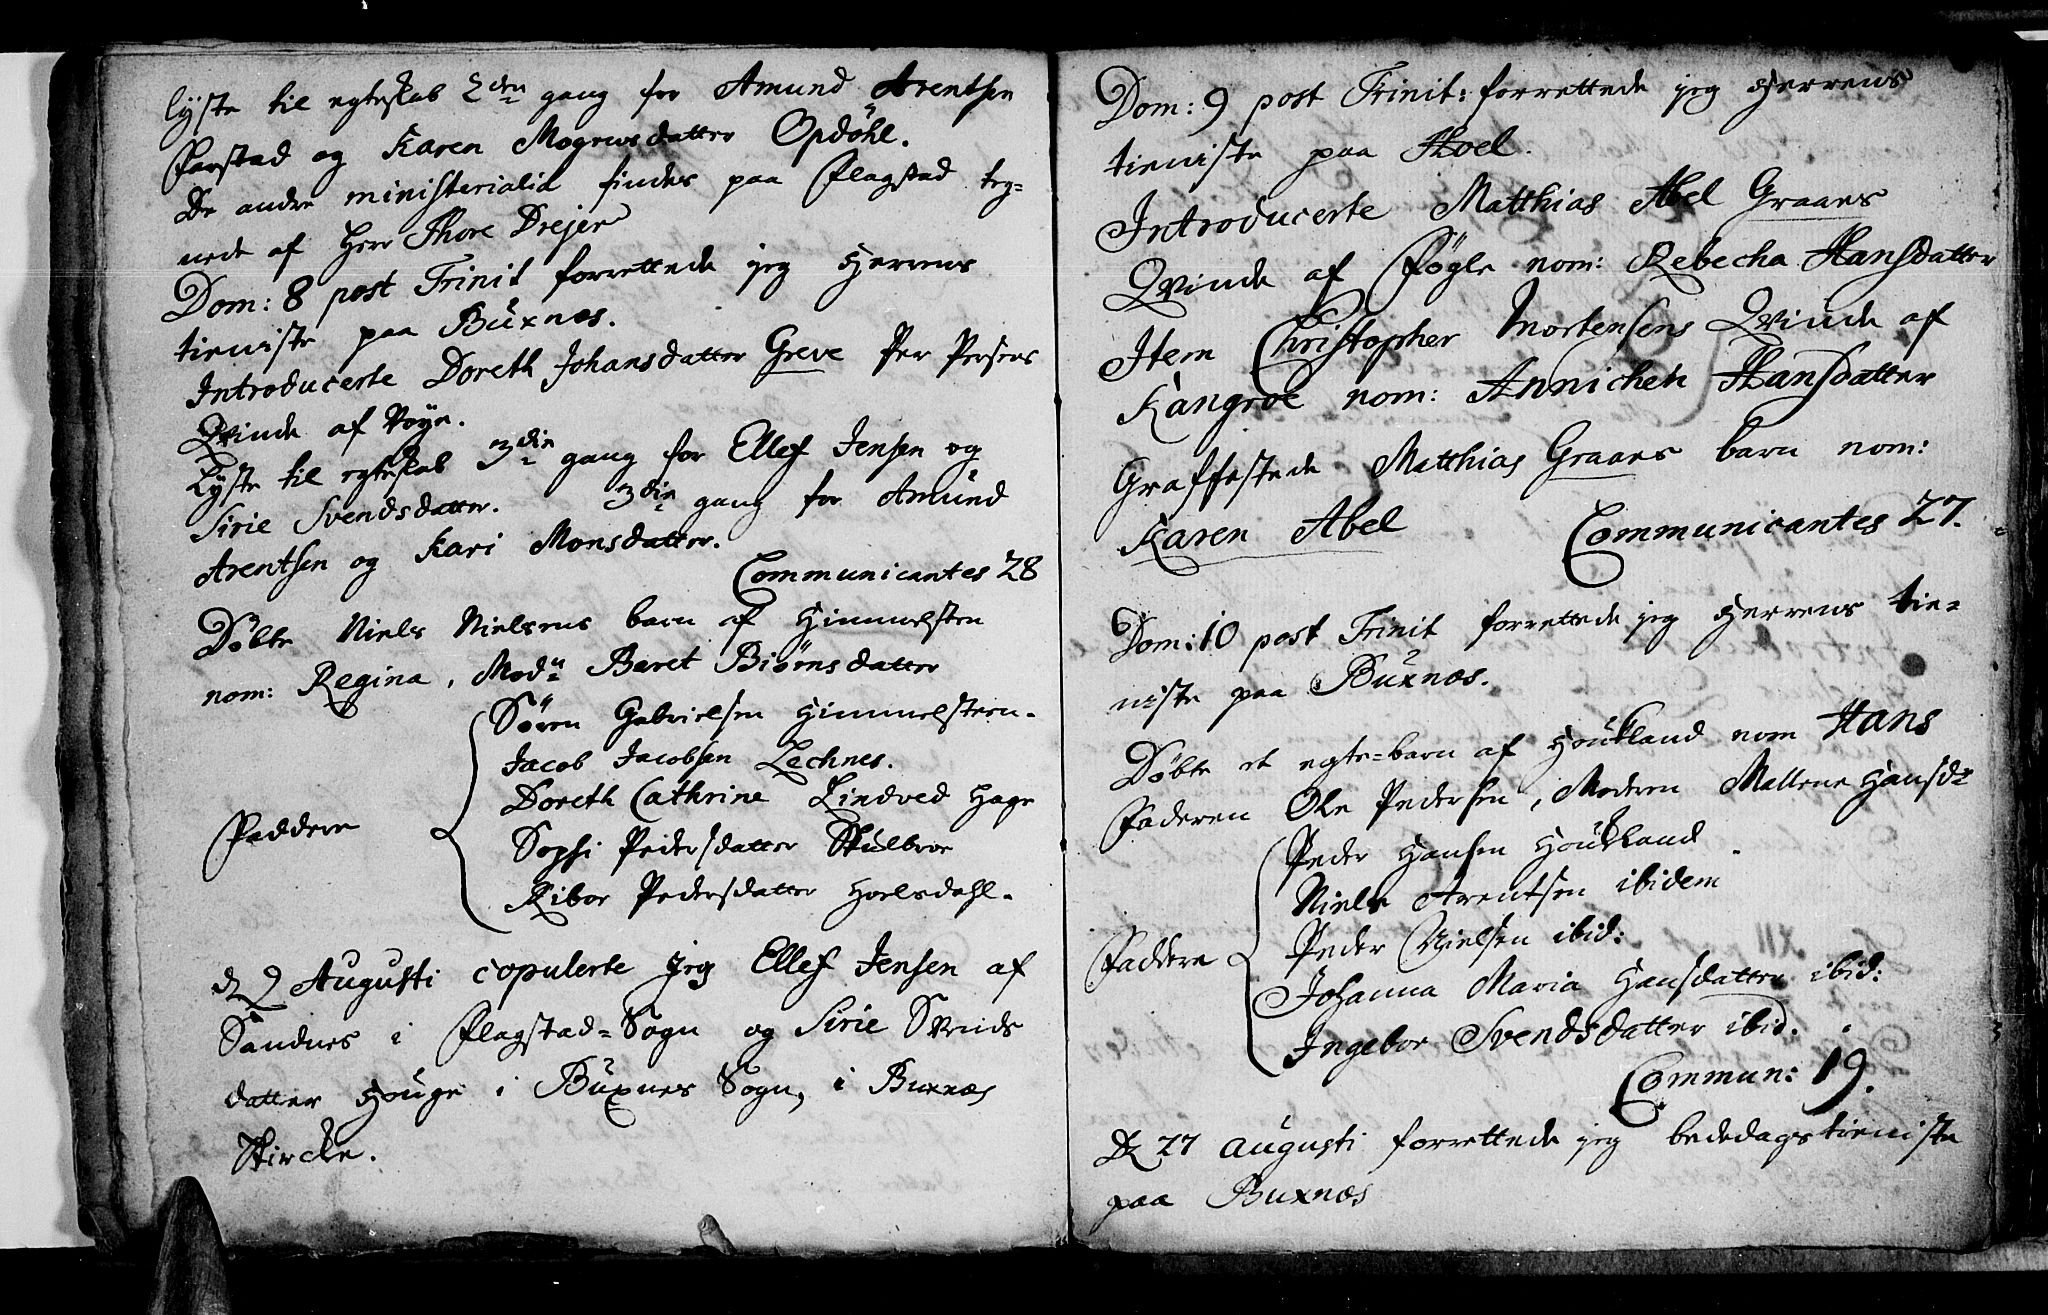 lyste til egteskab 2den gang for Amund Arentsen
Farstad og Karen Mogensdatter Opdöhl.
De andre ministerialia findes paa Flagstad teg=
nede af Herr Thore Drejer
Dom: 8 post Trinit forrettede jeg Herrens
tieniste paa Buxnæs.
Introducerte Doreth Johansdatter Greve Per Persens
Qvinde af Vøye.
Lyste til egteskab 3die gang for Ellef Jensen og
Sirie Svendsdatter. 3die gang for Amund
Arentsen og Kari Monsdatter.
Communicantes 28
Döbte Niels Nielsens barn af Himmelsten
nom: Regina, Modn Beret Biörnsdatter
Sören Gabrielsen Himmelsteen.
Jacob Jacobsen Lechnes.
Doreth Cathrine Lindved Hage
Faddere Sophi Pedersdatter Skulbroe
Ribor Pedersdatter Hoelsdahl.
d 9 Augusti copulerte jeg Ellef Jensen af
Sandnes i Flagstad=Sogn og Sirie Svends
datter Houge i Buxnes Sogn, i Buxnæs
Kircke.
Dom: 9 post Trinit: forrettede jeg Herrens
tieniste paa Hoel.
Introducerte Matthias Abel Graaes
Qvinde af Fögle nom: Rebecha Hansdatter
Item Christopher Mortensens Qvinde af
Kangroe nom: Annichen Hansdatter
Graffæstede Matthias Graaes barn nom:
Karen Abel Communicantes 27.
Dom: 10 post Trinit forrettede jeg Herrens tie=
niste paa Buxnæs.
Döbte et egte=barn af Houkland nom Hans
Faderen Ole Pedersen, Moderen Maltene Hansdr
Peder Hansen Houkland
Niels Arentsen ibidem
Faddere Peder Nielsen ibid:
Johanna Maria Hansdatter ibid:
Ingebor Svendsdatter ibid.
Commun: 19.
D 27 Augusti forrettede jeg bededagstieniste
paa Buxnæs